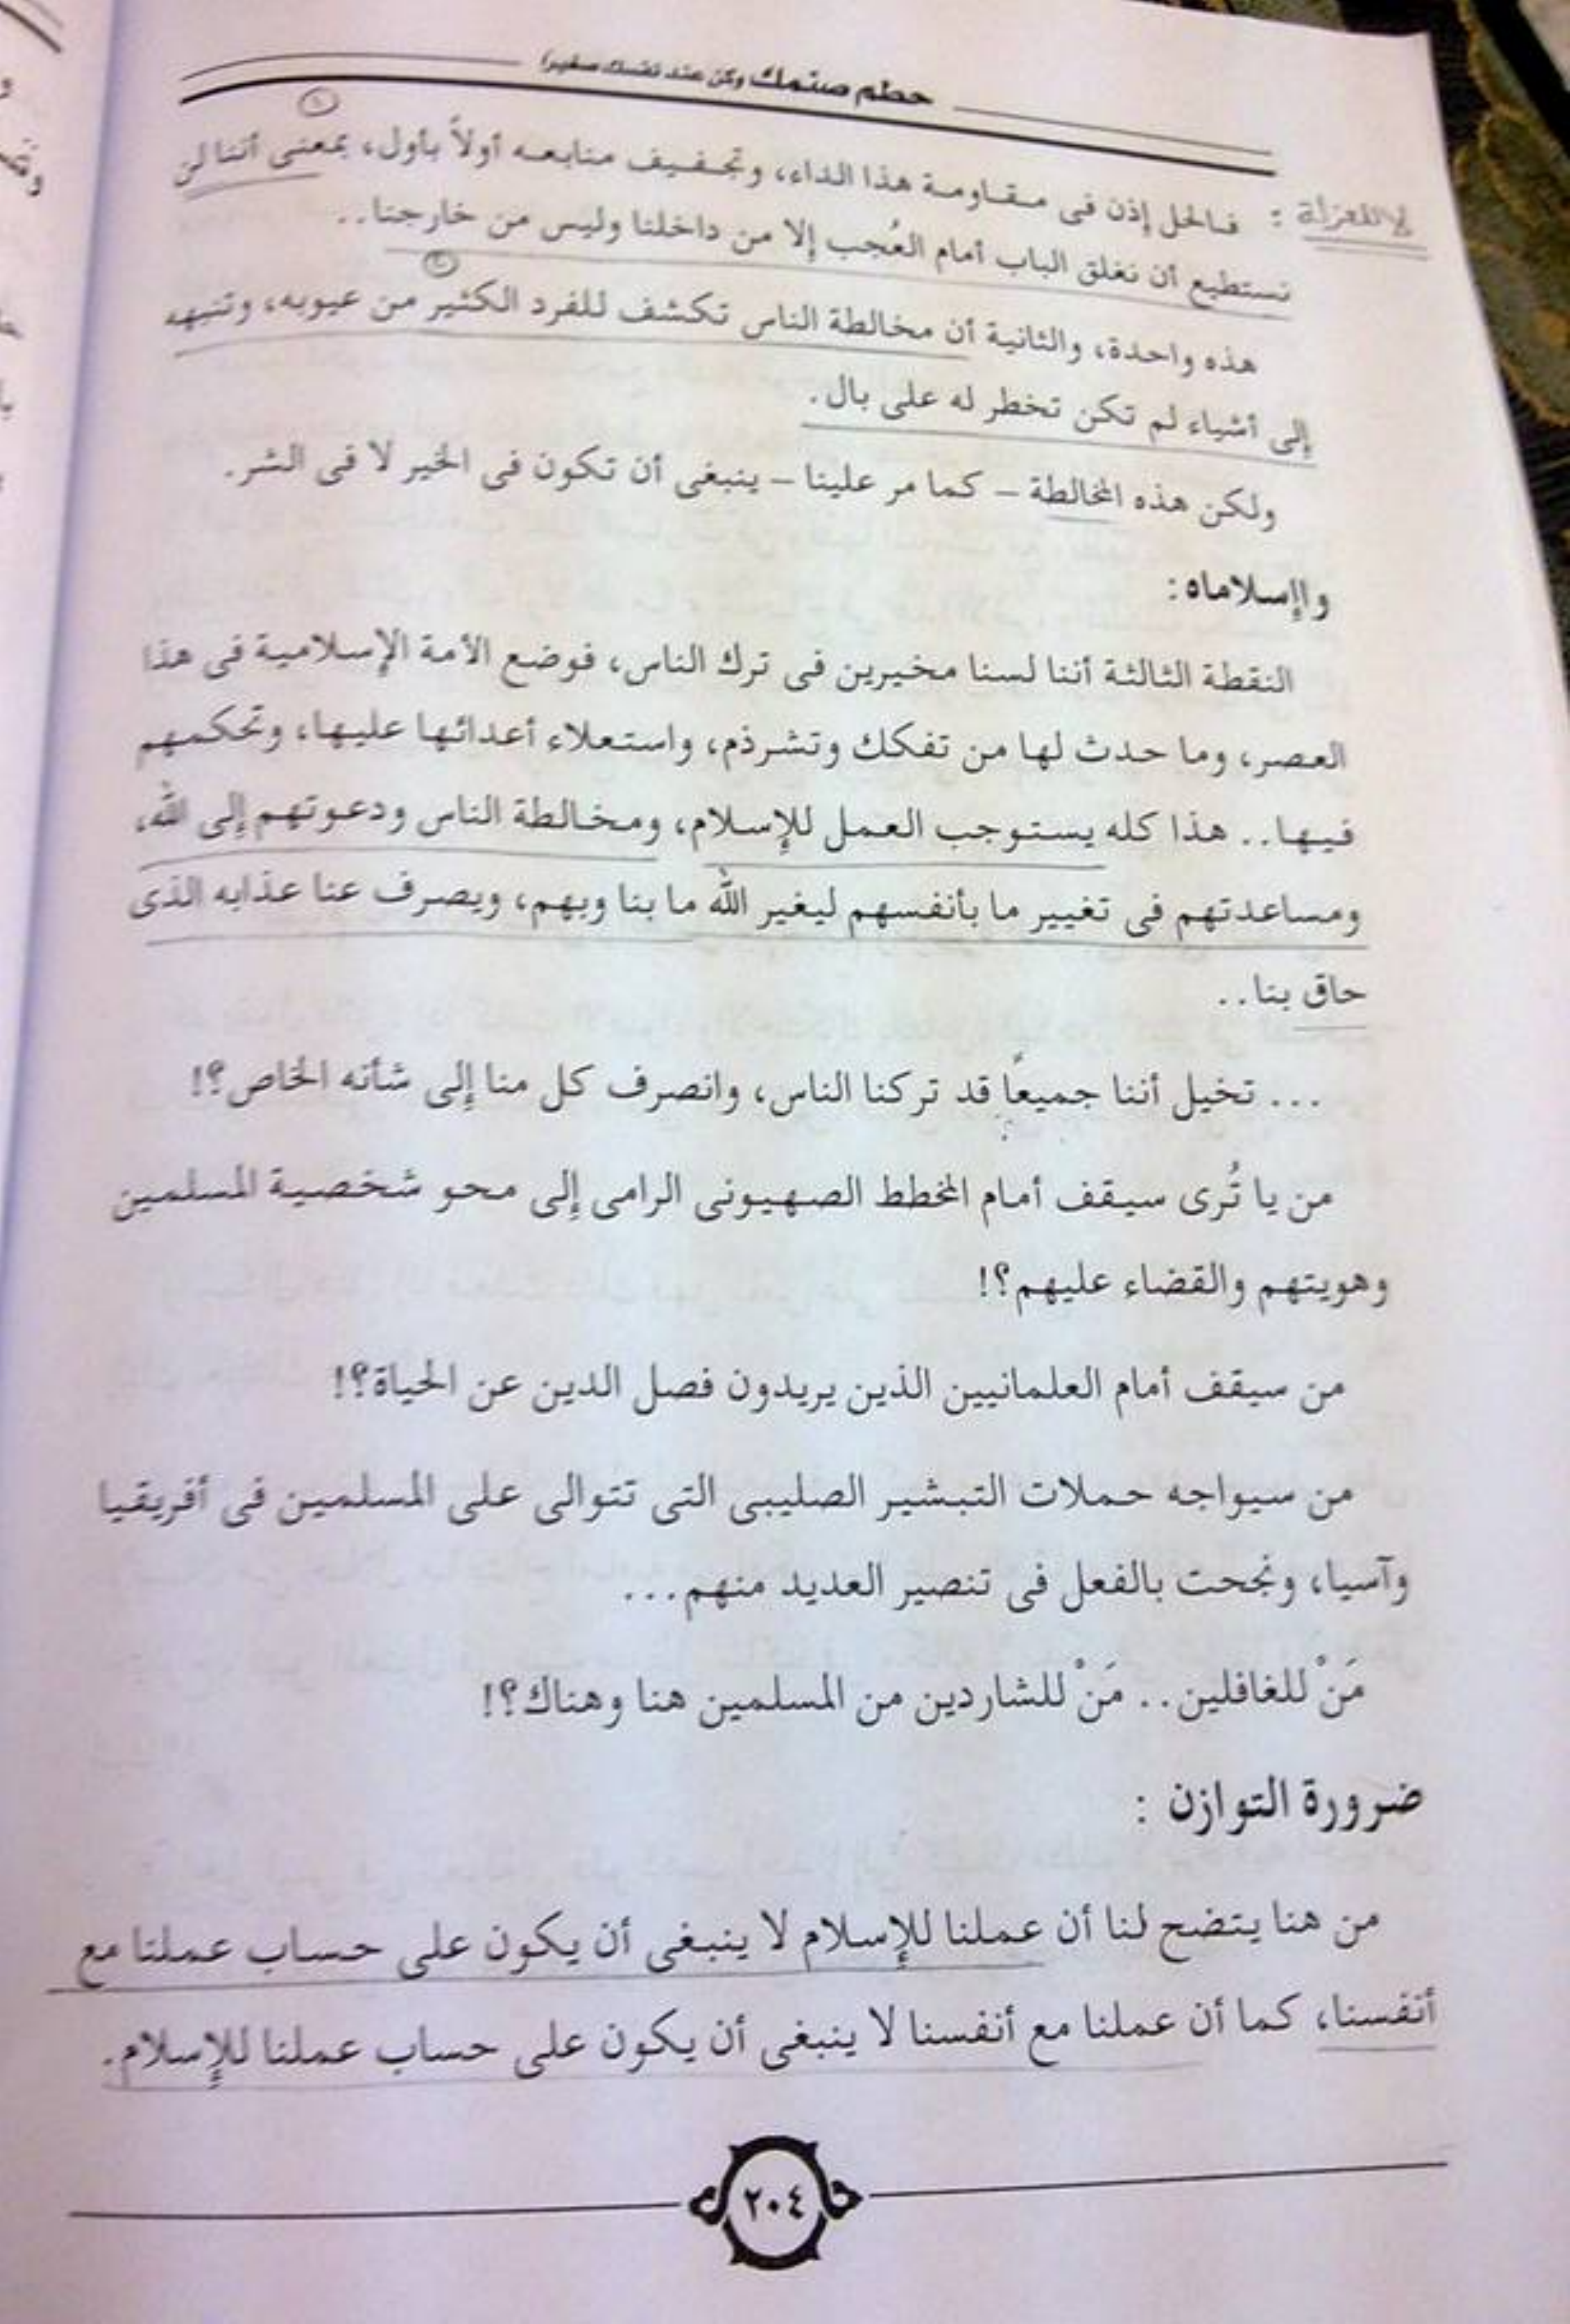 حطم صنمك وكن عند نفسك صغيراً
لا للعزلة :
فالحل إذن فى مقاومة هذا الداء، وتجفيف منابعه أولاً بأول، بمعنى أننا لن
نستطيع أن نغلق الباب أمام العُجب إلا من داخلنا وليس من خارجنا..
هذه واحدة، والثانية أن مخالطة الناس تكشف للفرد الكثير من عيوبه، وتنبهه
إلى أشياء لم تكن تخطر له على بال.
ولكن هذه المخالطة – كما مر علينا – ينبغى أن تكون فى الخير لا فى الشر.
واإسلاماه:
النقطة الثالثة أننا لسنا مخيرين فى ترك الناس، فوضع الأمة الإسلامية فى هذا
العصر، وما حدث لها من تفكك وتشرذم، واستعلاء أعدائها عليها، وتحكمهم
فيها.. هذا كله يستوجب العمل للإسلام، ومخالطة الناس ودعوتهم إلى الله،
ومساعدتهم فى تغيير ما بأنفسهم ليغير الله ما بنا وبهم، ويصرف عنا عذابه الذى
حاق بنا..
... تخيل أننا جميعًا قد تركنا الناس، وانصرف كل منا إلى شأنه الخاص؟!
من يا تُرى سيقف أمام المخطط الصهيونى الرامى إلى محو شخصية المسلمين
وهويتهم والقضاء عليهم؟!
من سيقف أمام العلمانيين الذين يريدون فصل الدين عن الحياة؟!
من سيواجه حملات التبشير الصليبى التى تتوالى على المسلمين فى أفريقيا
وآسيا، ونجحت بالفعل فى تنصير العديد منهم...
مَنْ للغافلين.. مَنْ للشاردين من المسلمين هنا وهناك؟!
ضرورة التوازن :
من هنا يتضح لنا أن عملنا للإسلام لا ينبغى أن يكون على حساب عملنا مع
أنفسنا، كما أن عملنا مع أنفسنا لا ينبغى أن يكون على حساب عملنا للإسلام.
٢٠٤